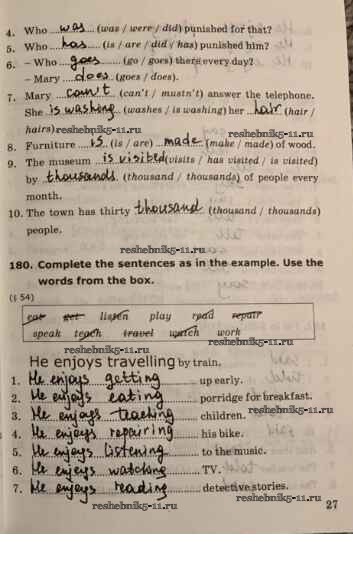 4. Who was (was / were / did) punished for that?
5. Who has (is / are / did / has) punished him?
6. – Who goes (go / goes) there every day?
– Mary does (goes / does).
7. Mary can't (can't / mustn't) answer the telephone.
She is washing (washes / is washing) her hair (hair /
hairs) reshebnik5-11.ru reshebnik5-11.ru
8. Furniture is (is / are) made (make / made) of wood.
9. The museum is visited (visits / has visited / is visited)
by thousands (thousand / thousands) of people every
month.
10. The town has thirty thousand (thousand / thousands)
people.
reshebnik5-11.ru
180. Complete the sentences as in the example. Use the
words from the box.
(§ 54)
eat get listen play read repair
speak teach travel watch work
reshebnik5-11.ru reshebnik5-11.ru
He enjoys travelling by train.
1. He enjoys getting up early.
2. He enjoys eating porridge for breakfast.
3. He enjoys teaching children. reshebnik5-11.ru
4. He enjoys repairing his bike.
5. He enjoys listening to the music.
6. He enjoys watching TV.
7. He enjoys reading detective stories.
reshebnik5-11.ru reshebnik5-11.ru
27